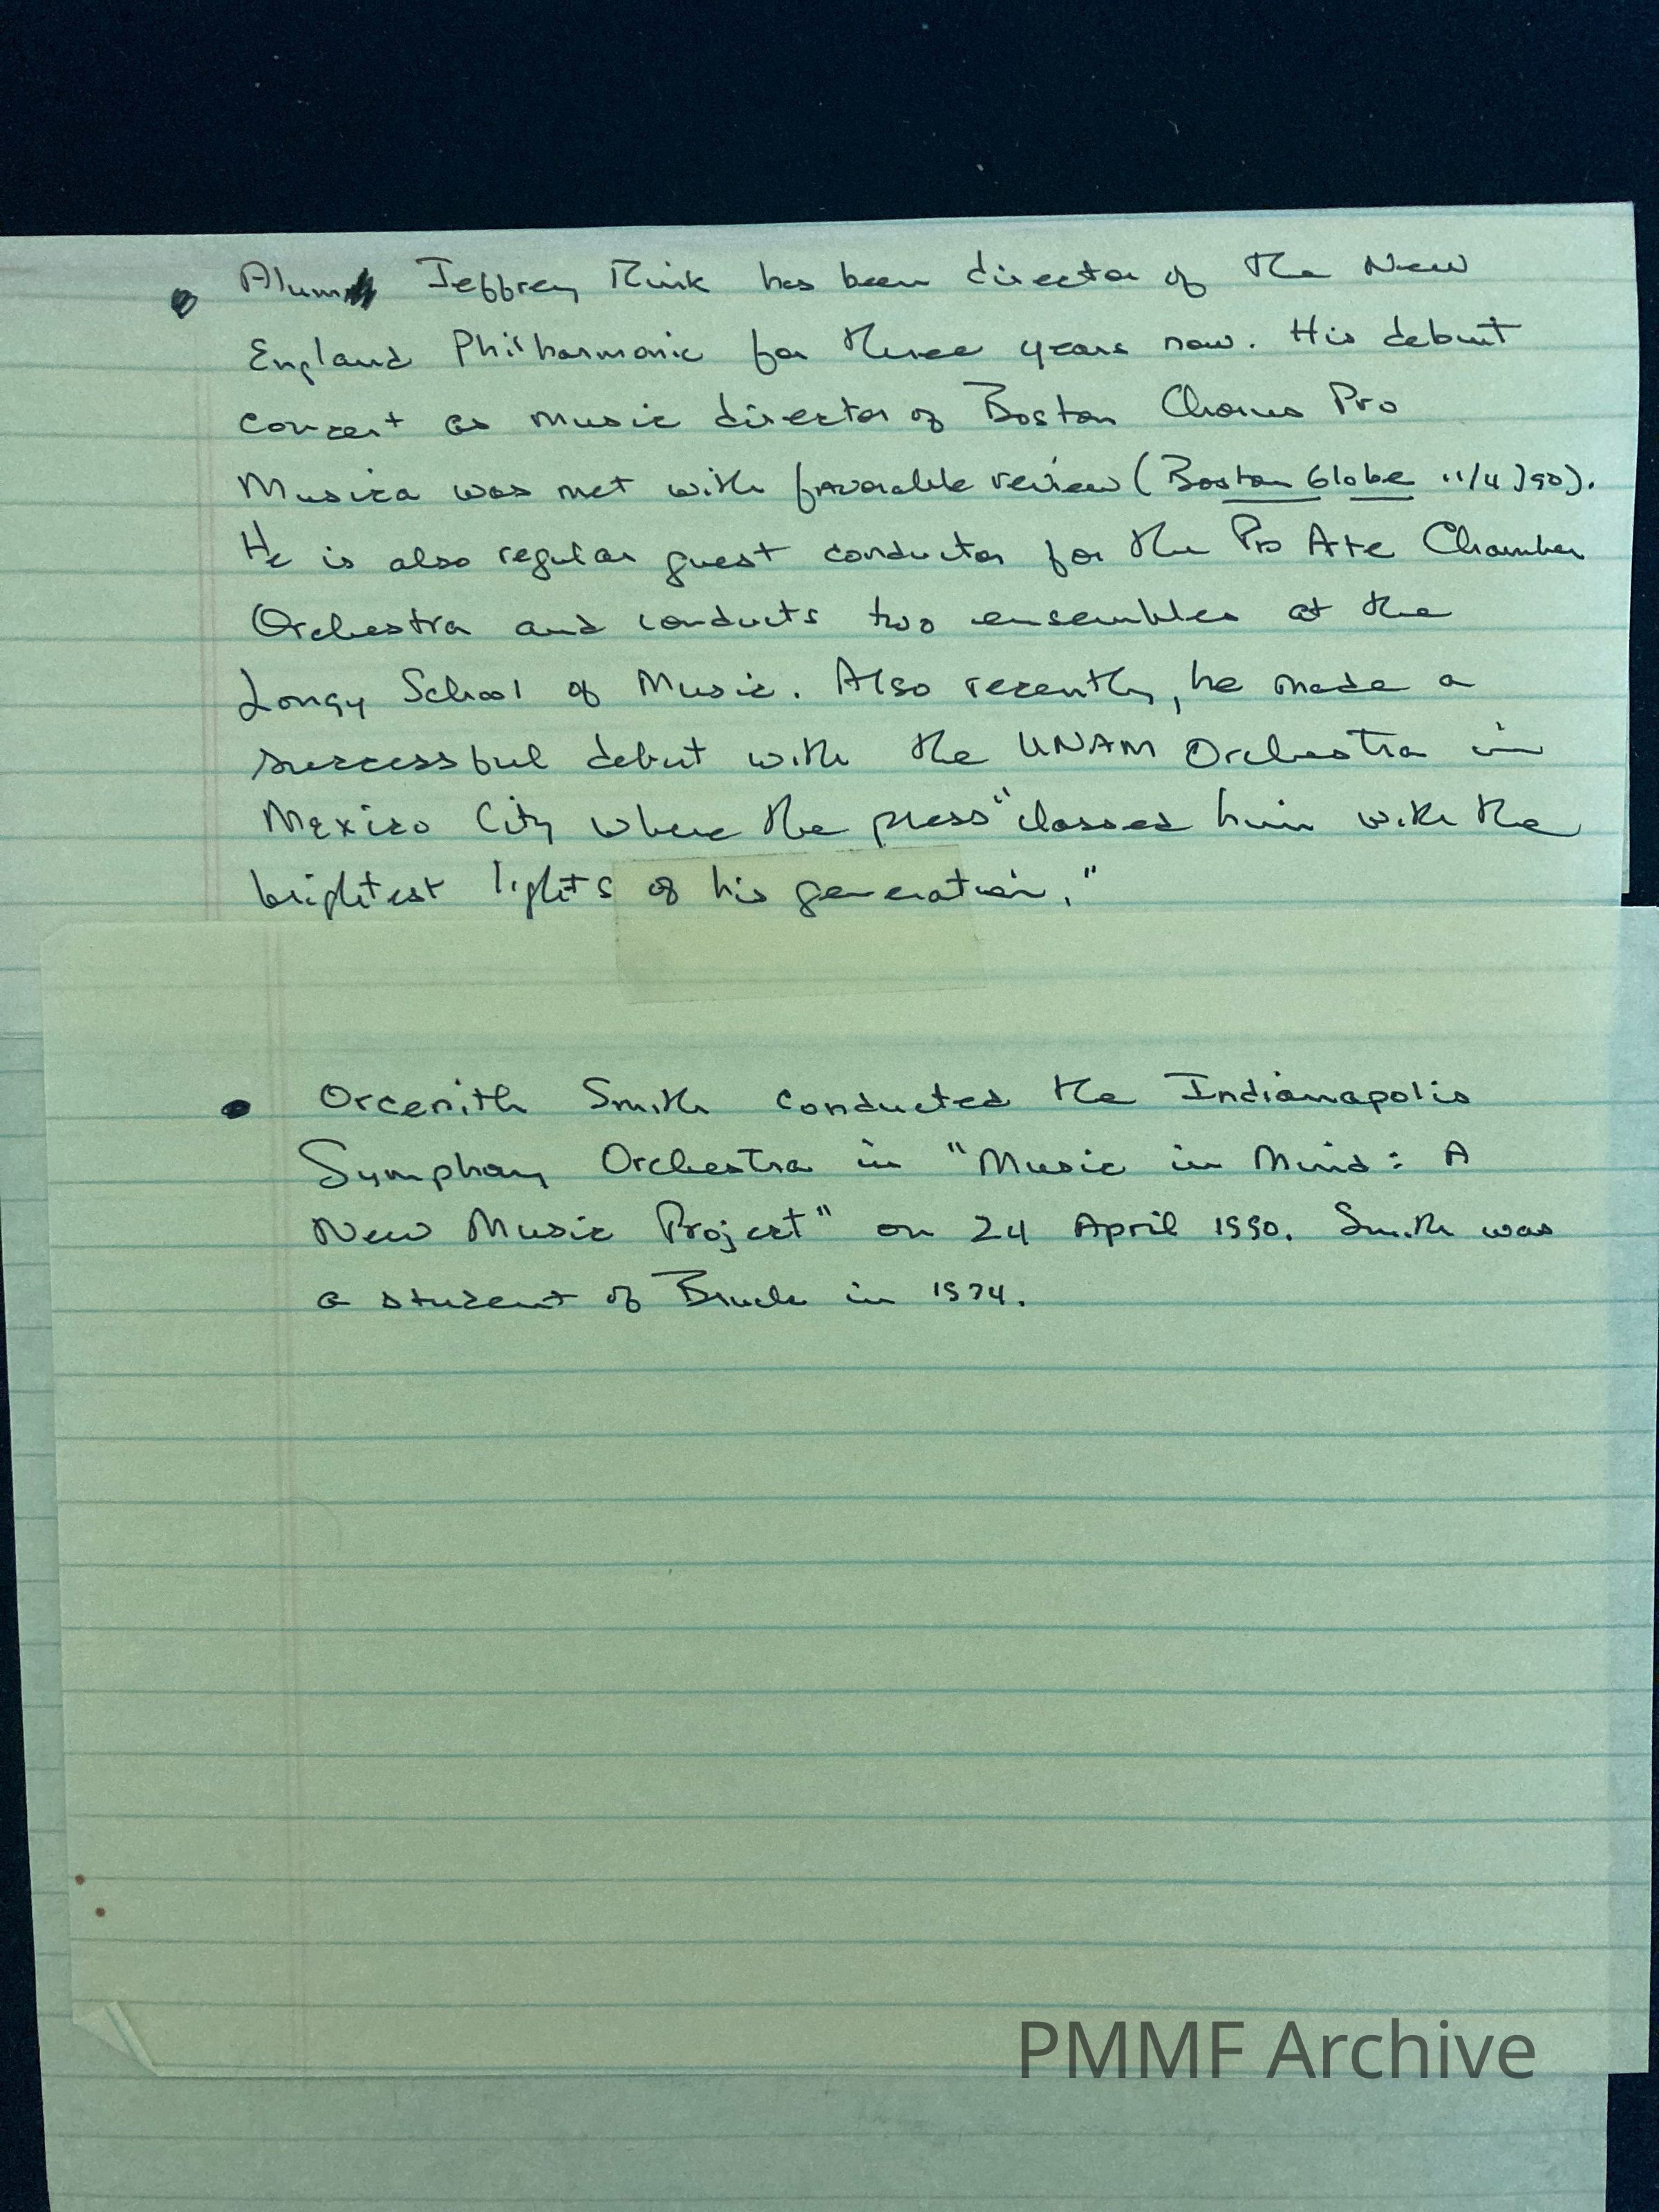 • Alum Jeffrey Rink has been director of the New
England Philharmonic for three years now. His debut
concert as music director of Boston Chorus Pro
Musica was met with favorable review (Boston Globe 11/4/90).
He is also regular guest conductor for the Pro Arte Chamber
Orchestra and conducts two ensembles at the
Longy School of Music. Also recently, he made a
successful debut with the UNAM Orchestra in
Mexico City where the press "classed him with the
brightest lights of his generation."
• Orcenith Smith conducted the Indianapolis
Symphony Orchestra in "Music in Mind: A
New Music Project" on 24 April 1990. Smith was
a student of Bruck in 1974.
PMMF Archive